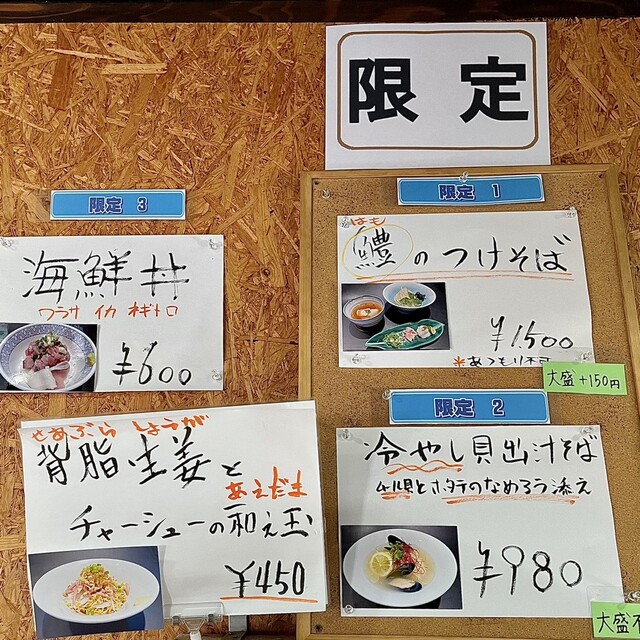 限定
限定 1
はも
鱧のつけそば
¥1,500
*あつもり不可
大盛+150円
限定 2
冷やし貝出汁そば
ムール貝とホタテのなめろう添え
¥980
大盛不
限定 3
海鮮丼
ワラサ イカ ネギトロ
¥600
せあぶら しょうが
背脂生姜と
あえだま
チャーシューの和え玉
¥450